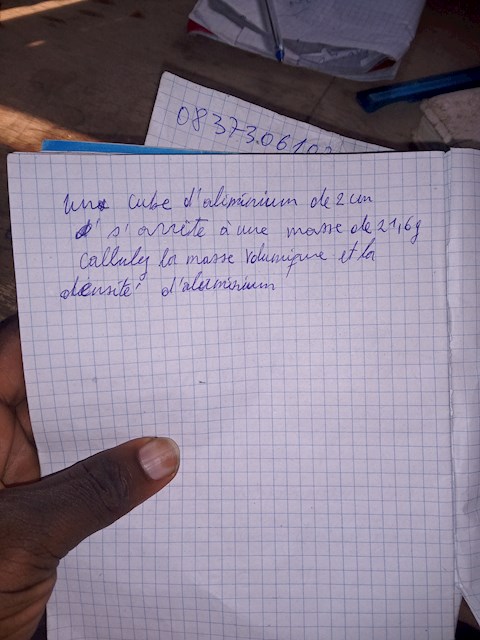 0837306102
un cube d'aliminium de 2 cm
d' s'arrête à une masse de 21,6g
Calluley la masse volumique et la
densité d'aluminium